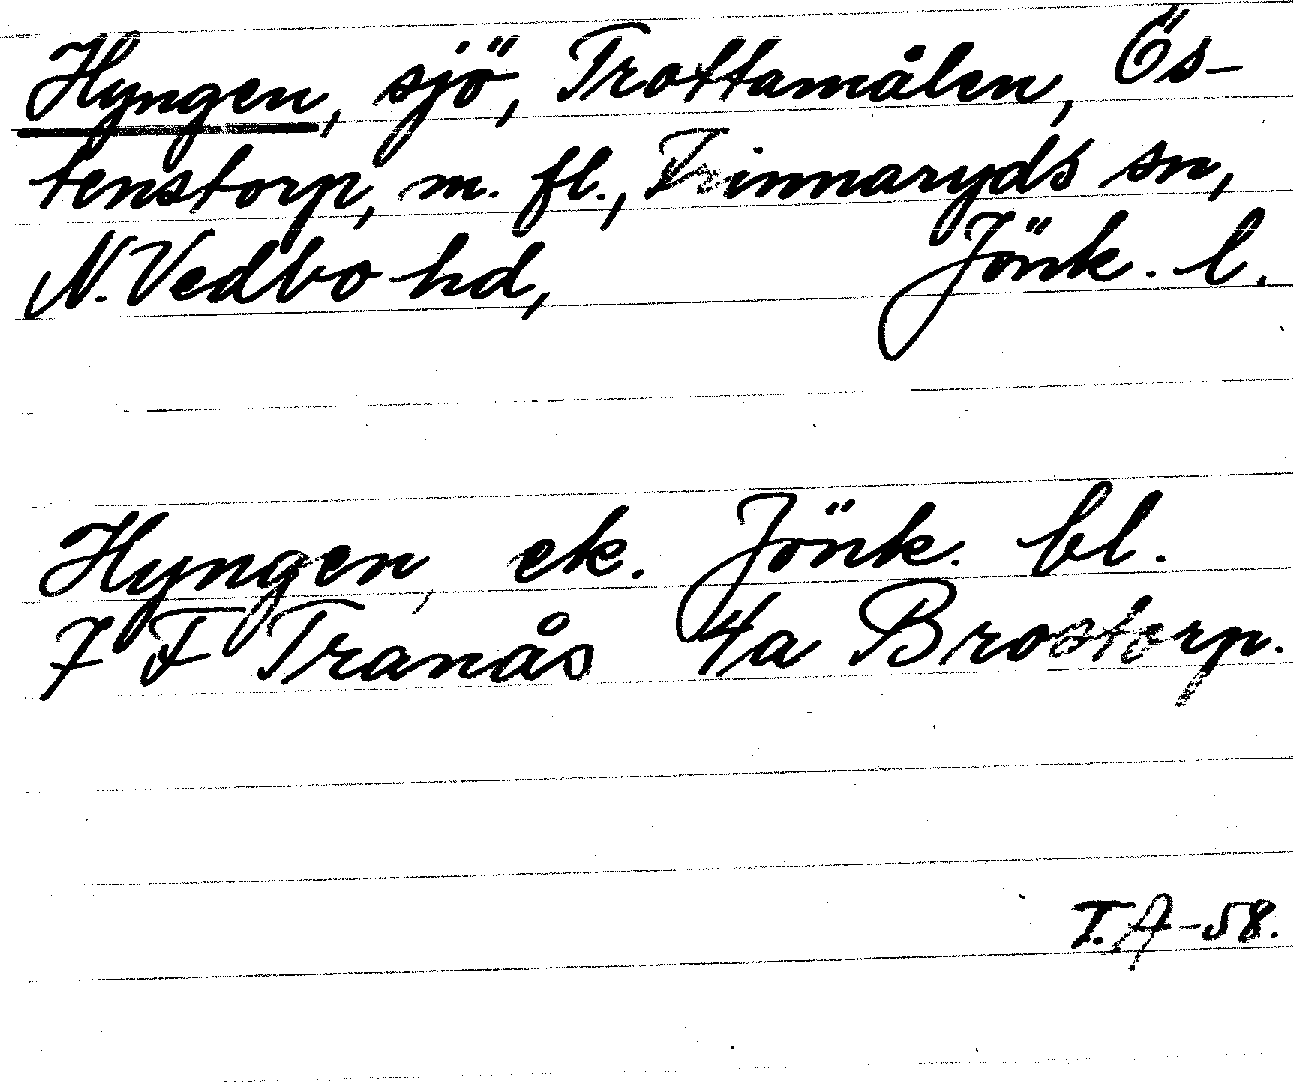 Hyngen, sjö, Trottamålen, Ös-
tenstorp, m. fl., Linnaryds sn,
N. Vedbo hd, Jönk. l.
Hyngen, ek. Jönk. bl.
7 F Tranås 4a Brostorp.
T.A-58.